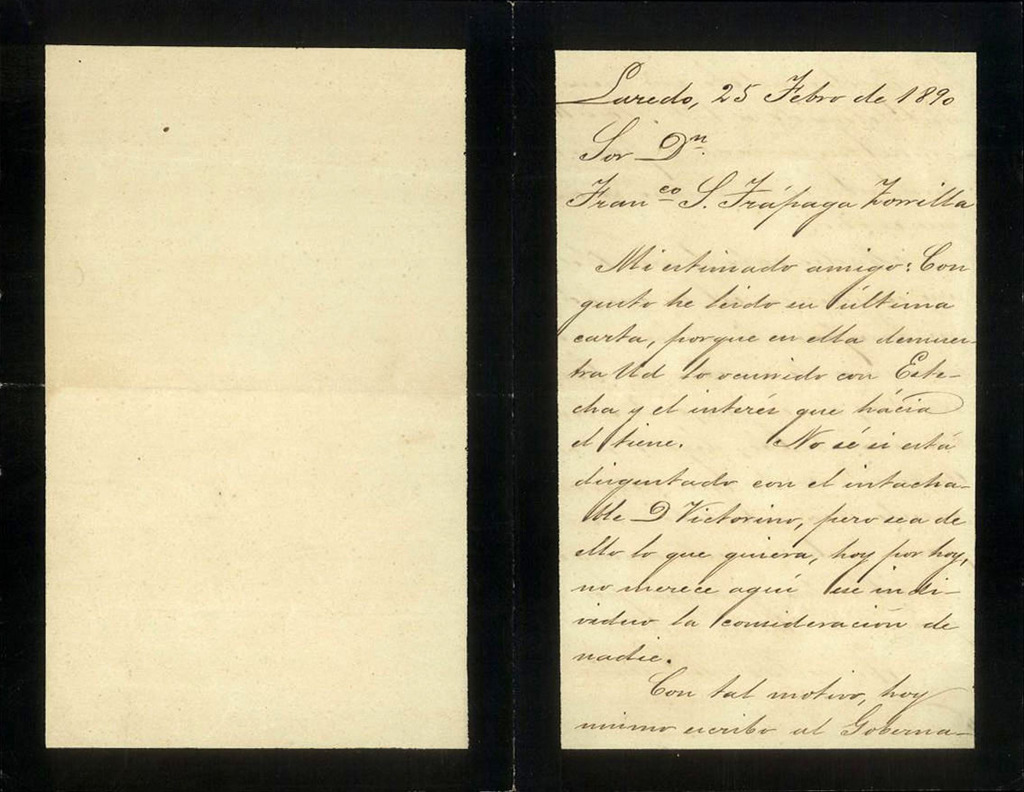 Laredo, 25 Febro de 1890
Sor Dn.
Franco S. Trápaga Zorrilla
Mi estimado amigo: Con
gusto he leido su última
carta, porque en ella demues-
tra Ud lo ocurrido con Este-
cha y el interés que hácia
el tiene. No sé si está
disgustado con el intacha-
ble D Victorino, pero sea de
ello lo que quiera, hoy por hoy,
no merece aquí ese indi-
viduo la consideración de
nadie.
Con tal motivo, hoy
mismo escribo al Goberna-